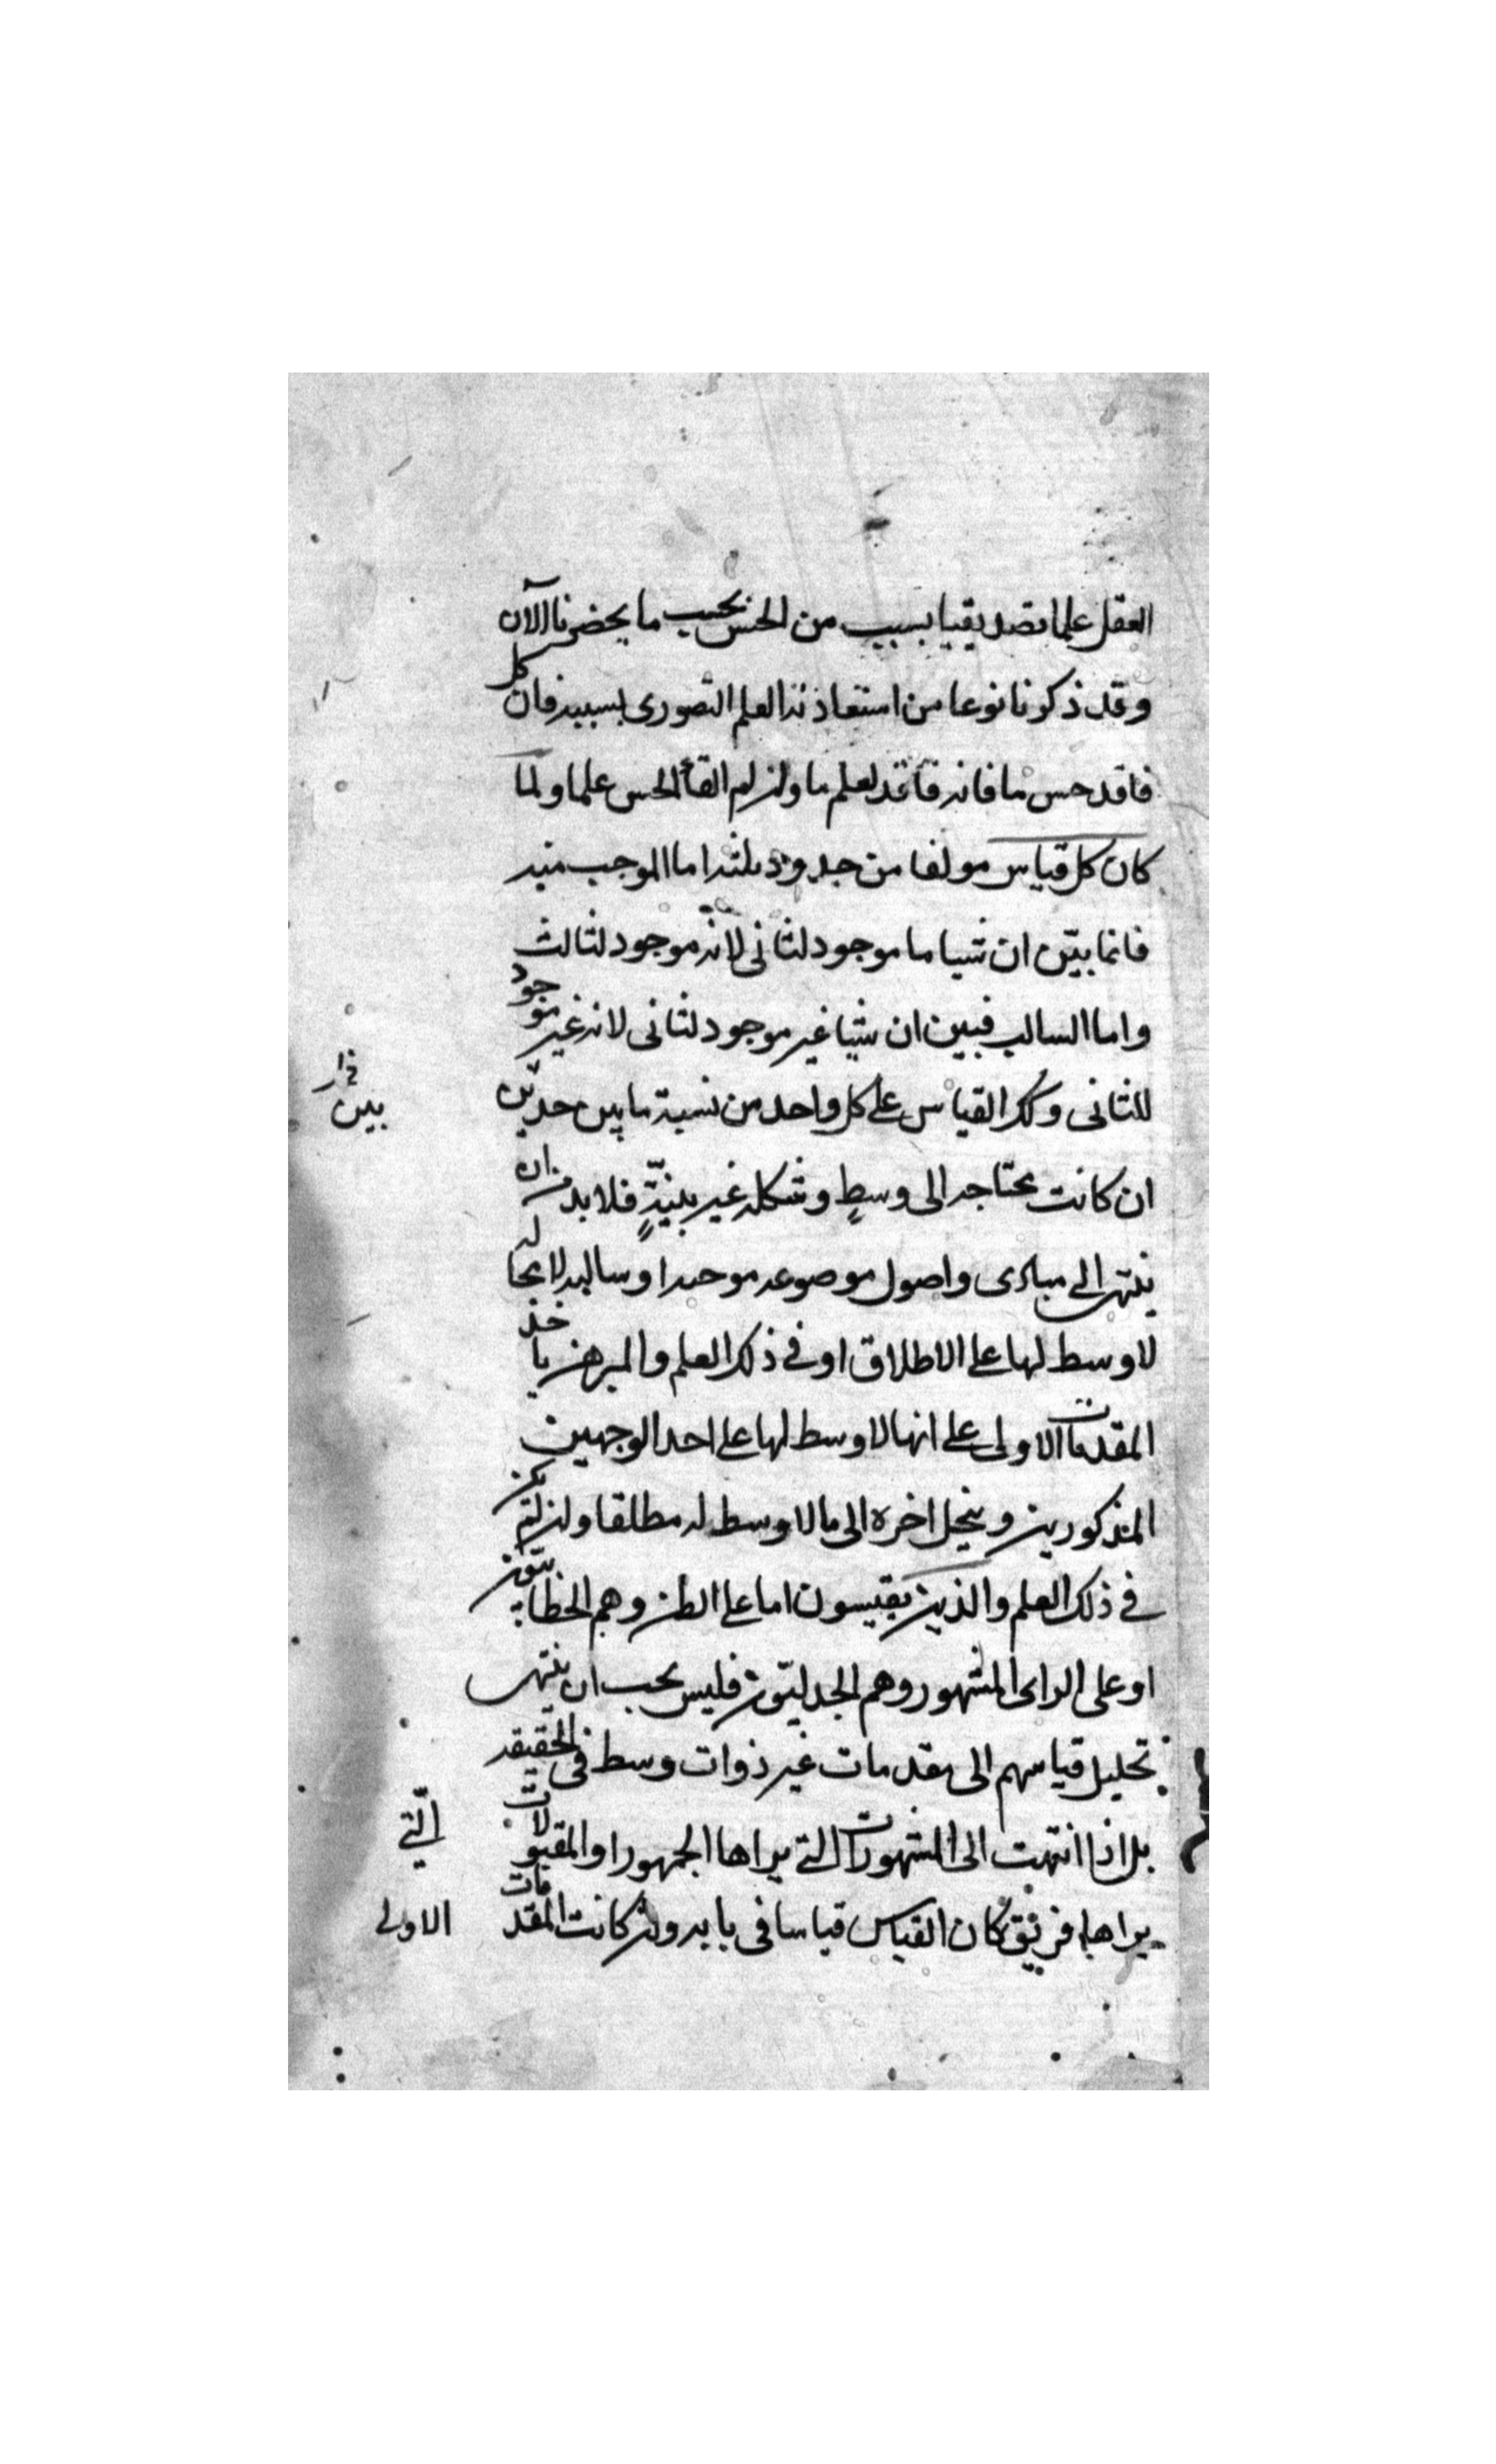 العقل علما تصديقيا بسبب من الحس بحسب ما يحضرنا الآن
وقد ذكرنا نوعا من استفادتنا العلم التصورى بسببه فان كل
فاقد حس ما فانه فاقد لعلم ما وان لم الحس علما ولما
كان كل قياس مولفا من حدود ثلثه اما الموجب منه
فانما يبيّن ان شيا ما موجود لثانى لانه موجود لثالث
واما السالب فيبين ان شيا غير موجود لثانى لانه غير موجود
للثانى وكك القياس على كل واحد من نسبة ما بين حدين
ان كانت محتاجه الى وسطٍ وشكله غير بينةٍ فلا بد من ان
ينتهى الى مبادى واصول موضوعه موجبه او سالبه لا محاله
لا وسط لها على الاطلاق او فى ذلك العلم والمبرهن ياخذ
المقدمات الاولى على انها لا وسط لها على احد الوجهين
المذكورين وينحل اخره الى ما لا وسط له مطلقا وان لم يكن
فى ذلك العلم والذين يقيسون اما على الظن وهم الخطابيّون
او على الراى المشهور وهم الجدليّون فليس يجب ان ينتهى
تحليل قياسهم الى مقدمات غير ذوات وسط فى الحقيقه
بل اذا انتهت الى المشهورات التى يراها الجمهور او المقبولات
يراها فريق كان القياس قياسا فى بابه وان كانت المقدمات
بين
الّتي
الاولى